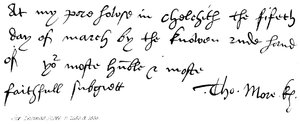 At my pore howse in chelchith the fifeth
day of march by the knowen rude hand
of yor moste humble & moste
faithfull subgiett
Tho. More kg.